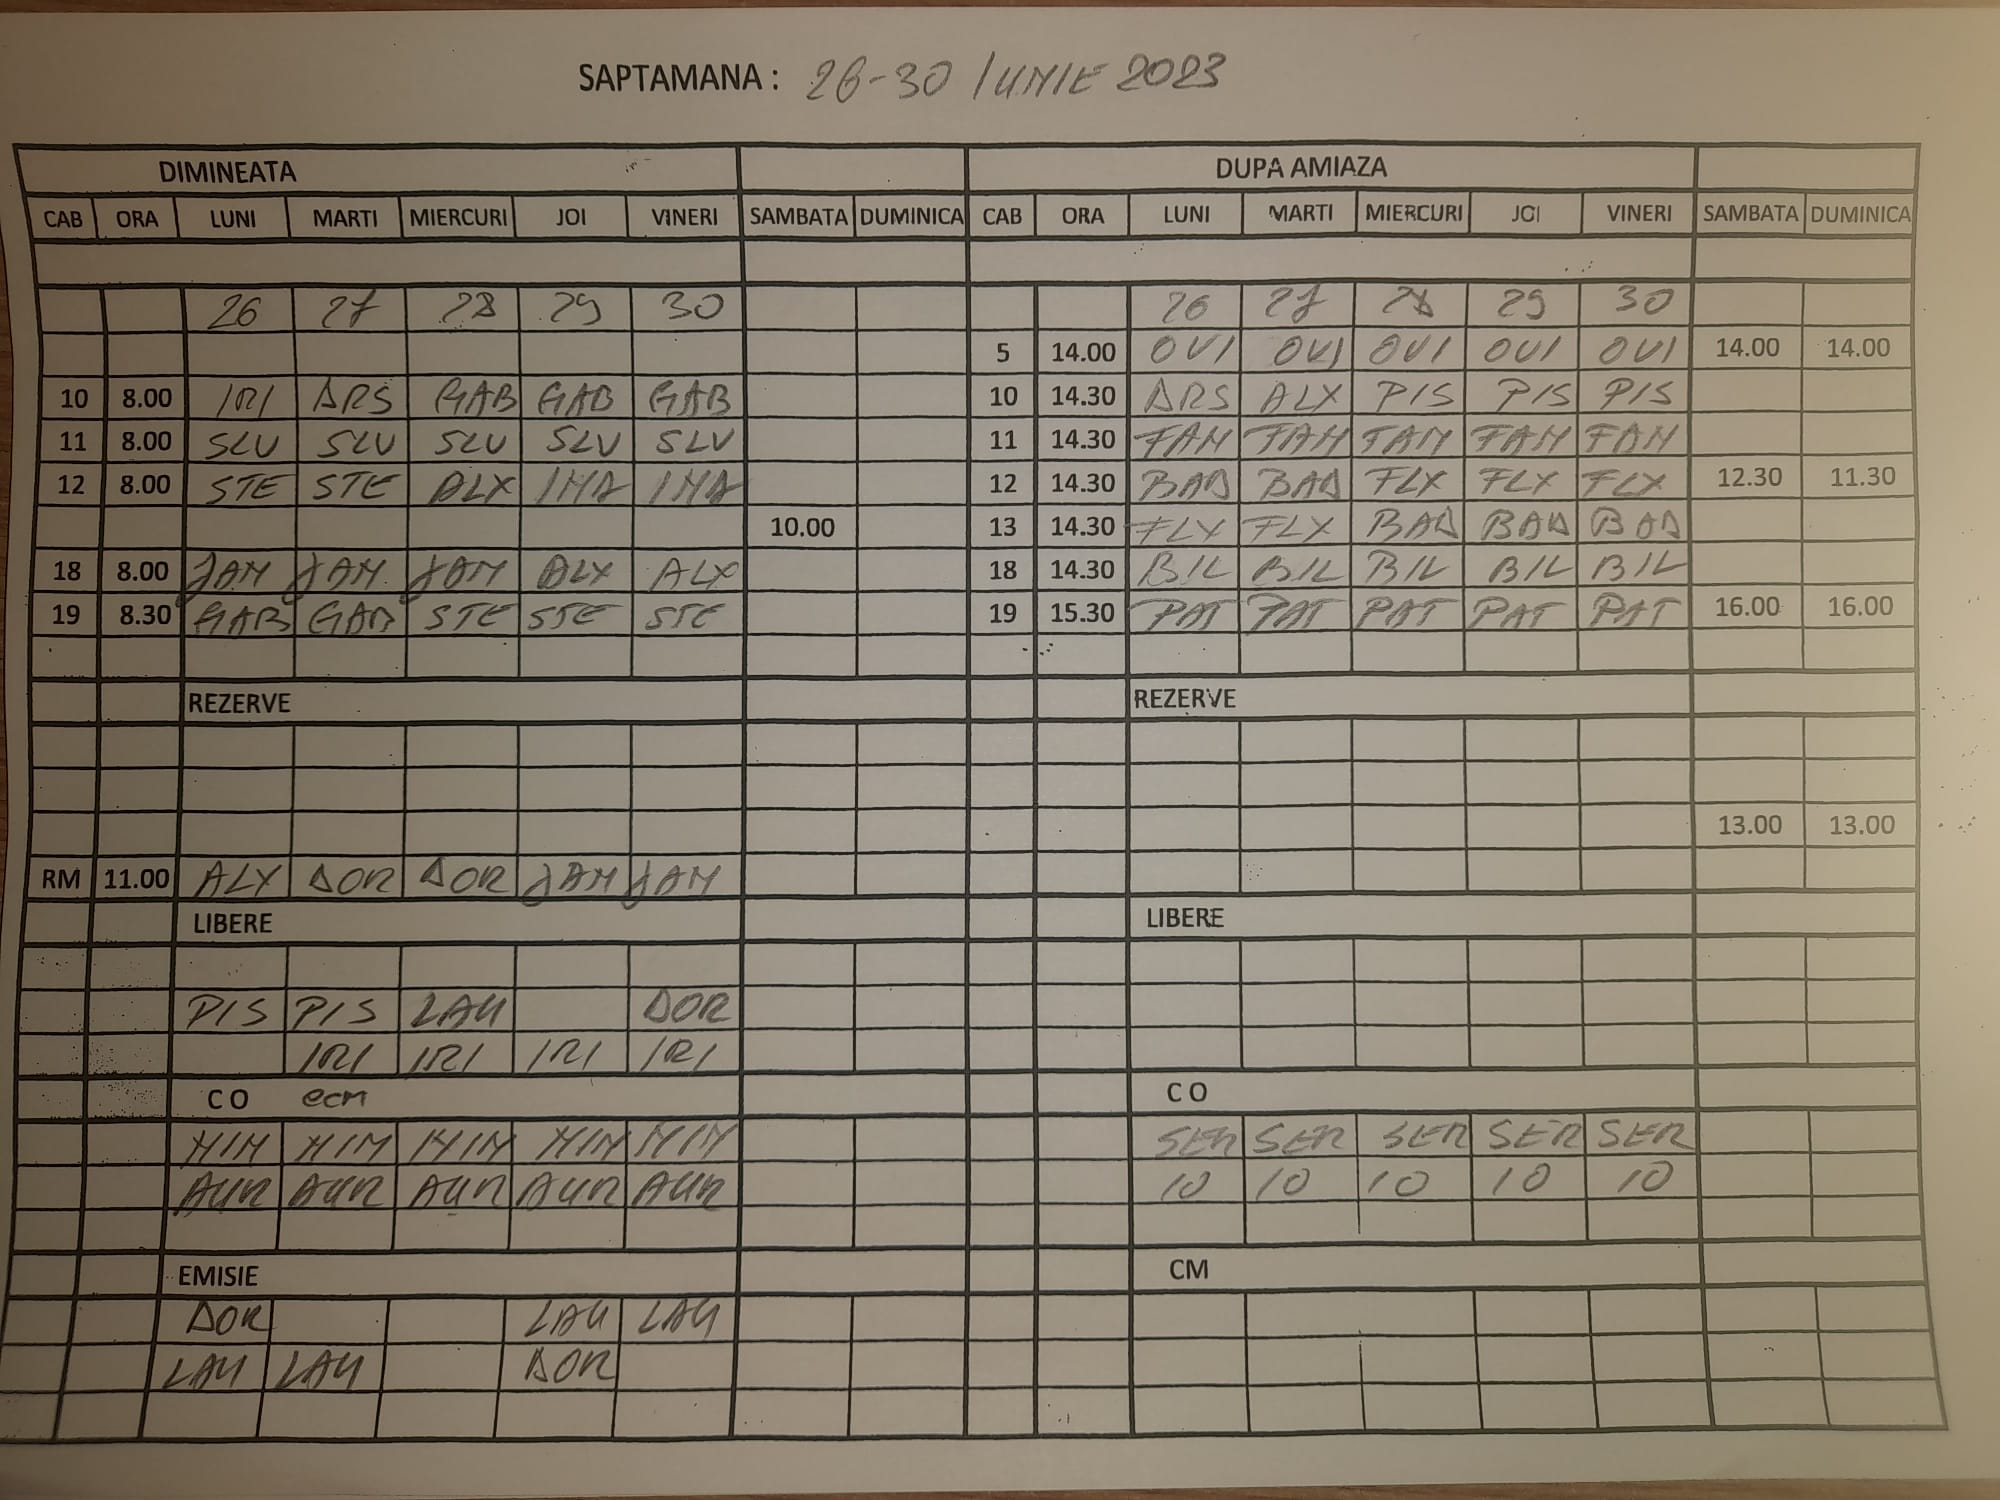 SAPTAMANA : 26-30 IUNIE 2023
DIMINEATA DUPA AMIAZA
CAB ORA LUNI MARTI MIERCURI JOI VINERI SAMBATA DUMINICA CAB ORA LUNI MARTI MIERCURI JOI VINERI SAMBATA DUMINICA
26 27 28 29 30 26 27 28 29 30
5 14.00 OVI OVI OVI OVI OVI 14.00 14.00
10 8.00 IRI ARS GAB GAB GAB 10 14.30 ARS ALX PIS PIS PIS
11 8.00 SLV SLV SLV SLV SLV 11 14.30 FAN FAN FAN FAN FAN
12 8.00 STE STE ALX INA INA 12 14.30 BAD BAD FLX FLX FLX 12.30 11.30
10.00 13 14.30 FLX FLX BAD BAD BAD
18 8.00 JAN JAN JAN ALX ALX 18 14.30 BIL BIL BIL BIL BIL
19 8.30 GAB GAB STE STE STE 19 15.30 PAT PAT PAT PAT PAT 16.00 16.00
REZERVE REZERVE
13.00 13.00
RM 11.00 ALX DOR DOR JAN JAN
LIBERE LIBERE
PIS PIS LAU DOR
IRI IRI IRI IRI
CO ecm CO
AUR AUR AUR AUR AUR SER SER SER SER SER
10 10 10 10 10
EMISIE CM
DOR LAU LAU
LAU LAU DOR